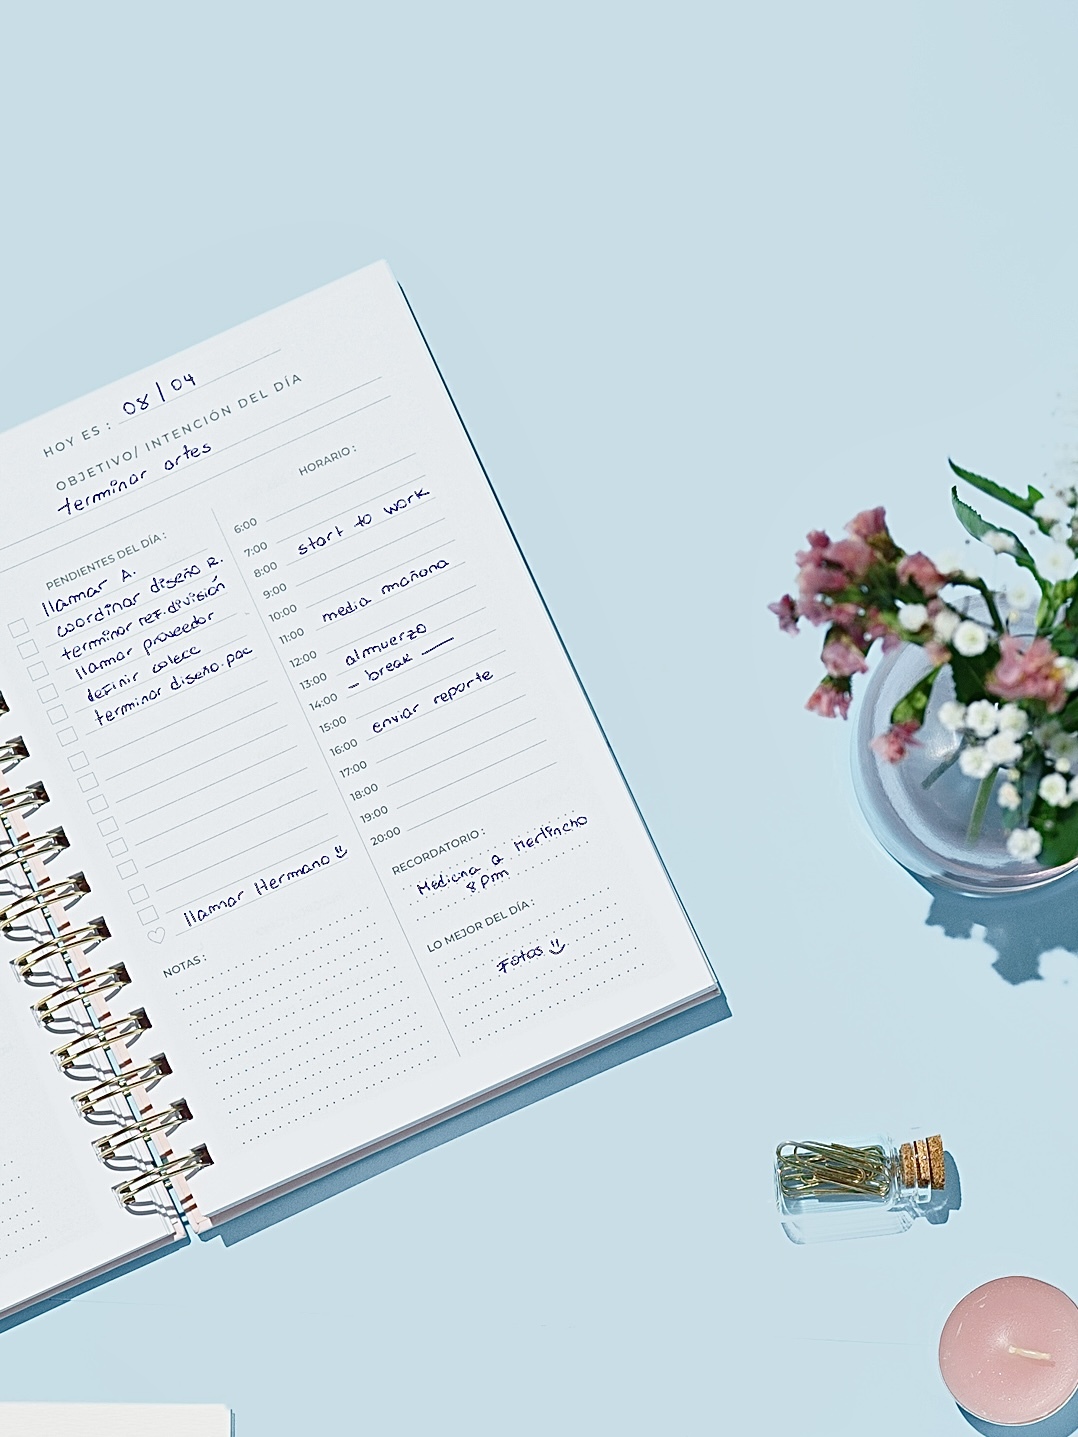 HOY ES : 08/04
OBJETIVO/ INTENCIÓN DEL DÍA
terminar artes
PENDIENTES DEL DÍA :
llamar A.
coordinar diseño R.
terminar ref. división
llamar proveedor
definir colecc
terminar diseño. pac
llamar Hermano
NOTAS :
HORARIO :
6:00
7:00
8:00 start to work
9:00
10:00
11:00 media mañana
12:00
13:00 almuerzo
14:00 – break —
15:00
16:00 enviar reporte
17:00
18:00
19:00
20:00
RECORDATORIO :
Medicina a Merlincho
8pm
LO MEJOR DEL DÍA :
Fotos